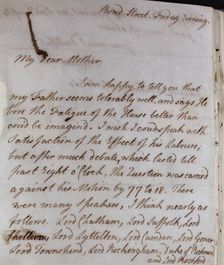 Bond Street. Friday Evening.
My Dear Mother
I am happy to tell you that
my Father seems tolerably well, and says He
bore the Fatigue of the House better than
could be imagined. I wish I could speak with
Satisfaction of the Effect of his Labours,
but after much debate, which lasted till
past Eight o'Clock, the Question was carried
against his Motion by 77 to 18. There
were many Speakers, I think nearly as
follows. Lord Chatham, Lord Suffolk, Lord
Shelburne, Lord Lyttelton, Lord Camden, Lord Gower
Lord Townshend, Lord Rockingham, Duke of Richmond
and Lord Rochford